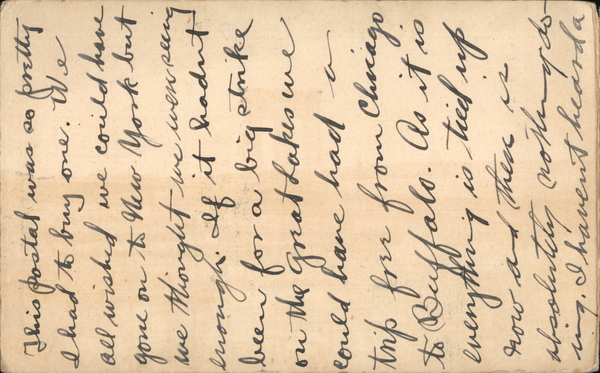 This postal was so pretty
I had to buy one. We
all wished we could have
gone on to New York but
we thought we were seeing
enough. If it hadn't
been for a big strike
on the Great Lakes we
could have had a
trip free from Chicago
to Buffalo. As it is
everything is tied up
now and there is
absolutely nothing do
ing. I havent heard a